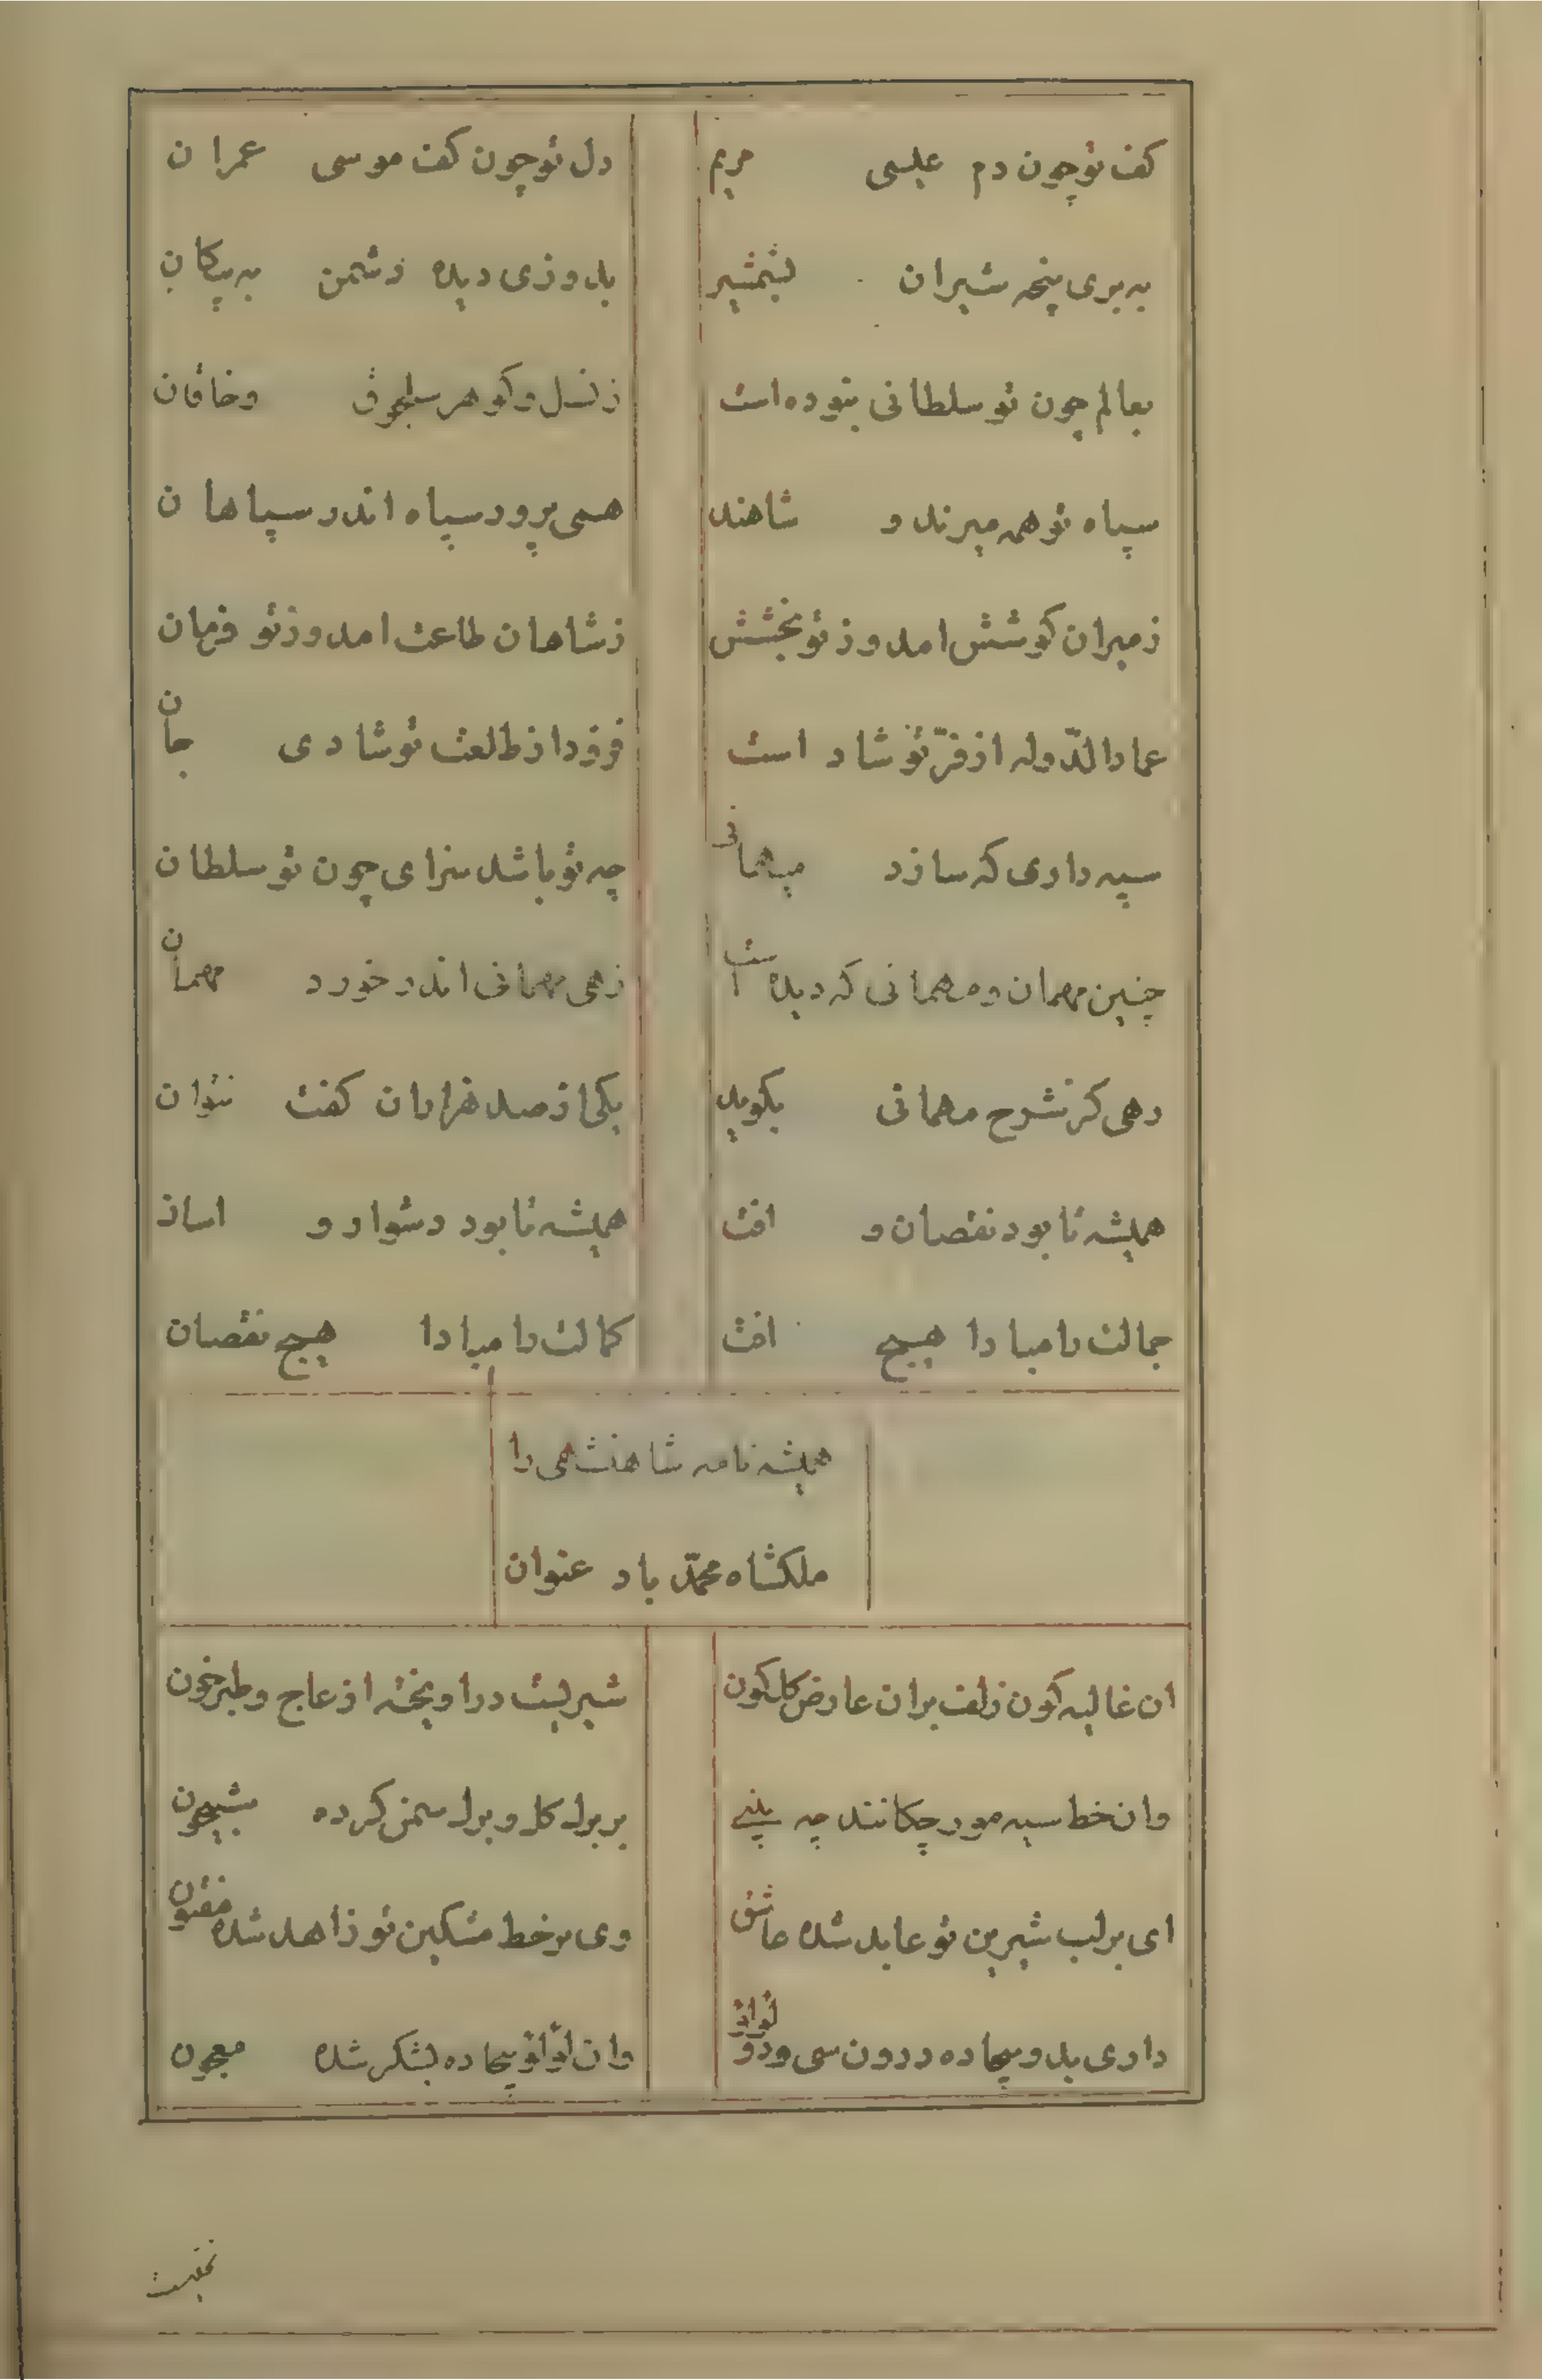 کف تو چون دم عیسی مریم
دل تو چون کف موسی عمران
به بری پنجه شیران بشمشیر
بدوزی دیده دشمن به پیکان
بعالم چون تو سلطانی نبوده است
ز نسل و کوهر سلجوق و خاقان
سپاه تو همه میرند و شاهند
همی پرورد سپاه اندر سپاهان
ز میران کوشش امد وز تو بخشش
ز شاهان طاعت امد وز تو فرمان
عمادالدّوله از فرّ تو شاد است
فزود از طلعت تو شادی جان
سپه داری که سازد میهمانی
چه تو باشد سزای چون تو سلطان
چنین مهمان و مهمانی که دیده است
زهی مهمانی اندر خورد مهمان
رهی کز شرح مهمانی بکوید
یکی از صد هزاران کفت نتوان
همیشه تا بود نقصان و افت
همیشه تا بود دشوار و اسان
جمالت را مبادا هیچ افت
کمالت را مبادا هیچ نقصان
همیشه نامه شاهنشهی را
ملکشاه محمّد باد عنوان
ان غالیه کون زلف بران عارض کلکون
شیریست دراویخته از عاج و طبرخون
وان خط سیه مورچکانند چه بینی
بر برك کل و برك سمن کرده شبیخون
ای بر لب شیرین تو عابد شده عاشق
وی بر خط مشکین تو زاهد شده مفتون
داری بدو بیجاده درون سی و دو لولو
وان لولو بیجاده بشکر شده معجون